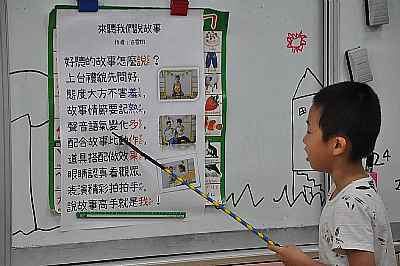 來聽我們說故事
好聽的故事怎麼說?
上台禮貌先問好,
態度大方不害羞,
故事情節要記熟,
聲音語氣變化多,
配合故事比動作,
道具搭配做效果,
眼睛認真看觀眾,
表演精彩拍拍手,
說故事高手就是我!
24